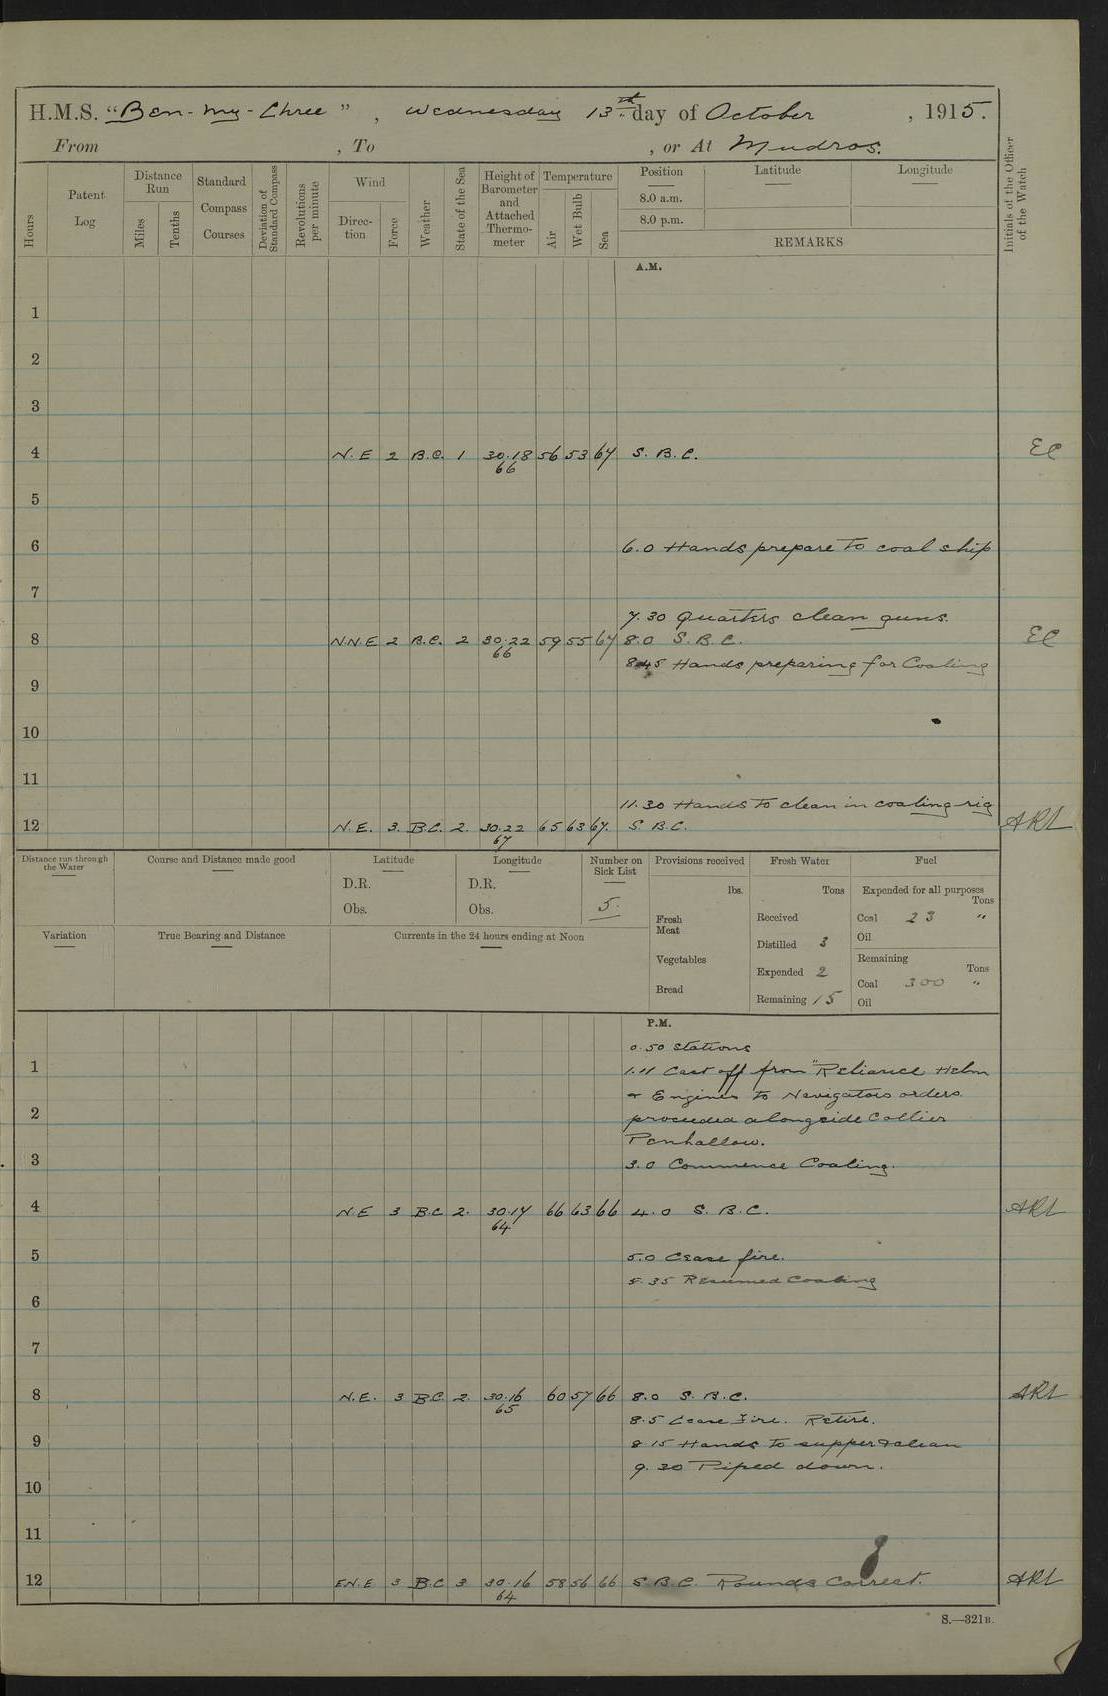 H.M.S. "Ben-my-Chree", Wednesday 13th day of October, 1915.
From , To , or At Mudros.
Hours
Patent Log
Distance Run
Miles
Tenths
Standard Compass Courses
Deviation of Standard Compass
Revolutions per minute
Wind
Direction
Force
Weather
State of the Sea
Height of Barometer and Attached Thermometer
Temperature
Air
Wet Bulb
Sea
Position
8.0 a.m.
8.0 p.m.
Latitude
Longitude
REMARKS
Initials of the Officer of the Watch
A.M.
1
2
3
4 N.E 2 B.C. 1 30.18 56 53 67 S. B. C. EC
66
5
6 6.0 Hands prepare to coal ship
7
7.30 Quarters clean guns.
8 N.N.E 2 B.C. 2 30.22 59 55 67 8.0 S.B.C. EC
66
8.45 Hands preparing for Coaling
9
10
11
11.30 Hands to clean in coaling rig
12 N.E. 3. B.C. 2. 30.22 65 63 67. S.B.C. ARL
67
Distance run through the Water
Course and Distance made good
Latitude
D.R.
Obs.
Longitude
D.R.
Obs.
Number on Sick List
5.
Provisions received
lbs.
Fresh Meat
Vegetables
Bread
Fresh Water
Tons
Received
Distilled 3
Expended 2
Remaining 15
Fuel
Expended for all purposes
Tons
Coal 23 "
Oil
Remaining
Tons
Coal 300 "
Oil
Variation
True Bearing and Distance
Currents in the 24 hours ending at Noon
P.M.
0.50 Stations
1 1.11 Cast off from "Reliance Helm
& Engines to Navigators orders
2 proceeded alongside Collier
Penhallow.
3 3.0 Commence Coaling.
4 N.E 3 B.C 2. 30.17 66 63 66 4.0 S. B. C. ARL
64
5 5.0 Cease fire.
5.35 Resumed Coaling
6
7
8 N.E. 3 B.C. 2. 30.16 60 57 66 8.0 S.B.C. ARL
65
8.5 Cease Fire. Retire.
9 8 15 Hands to supper & clean
9.30 Piped down.
10
11
12 EN.E 3 B.C 3 30.16 58 56 66 S.B.C. Rounds Correct. ARL
64
S.—321B.